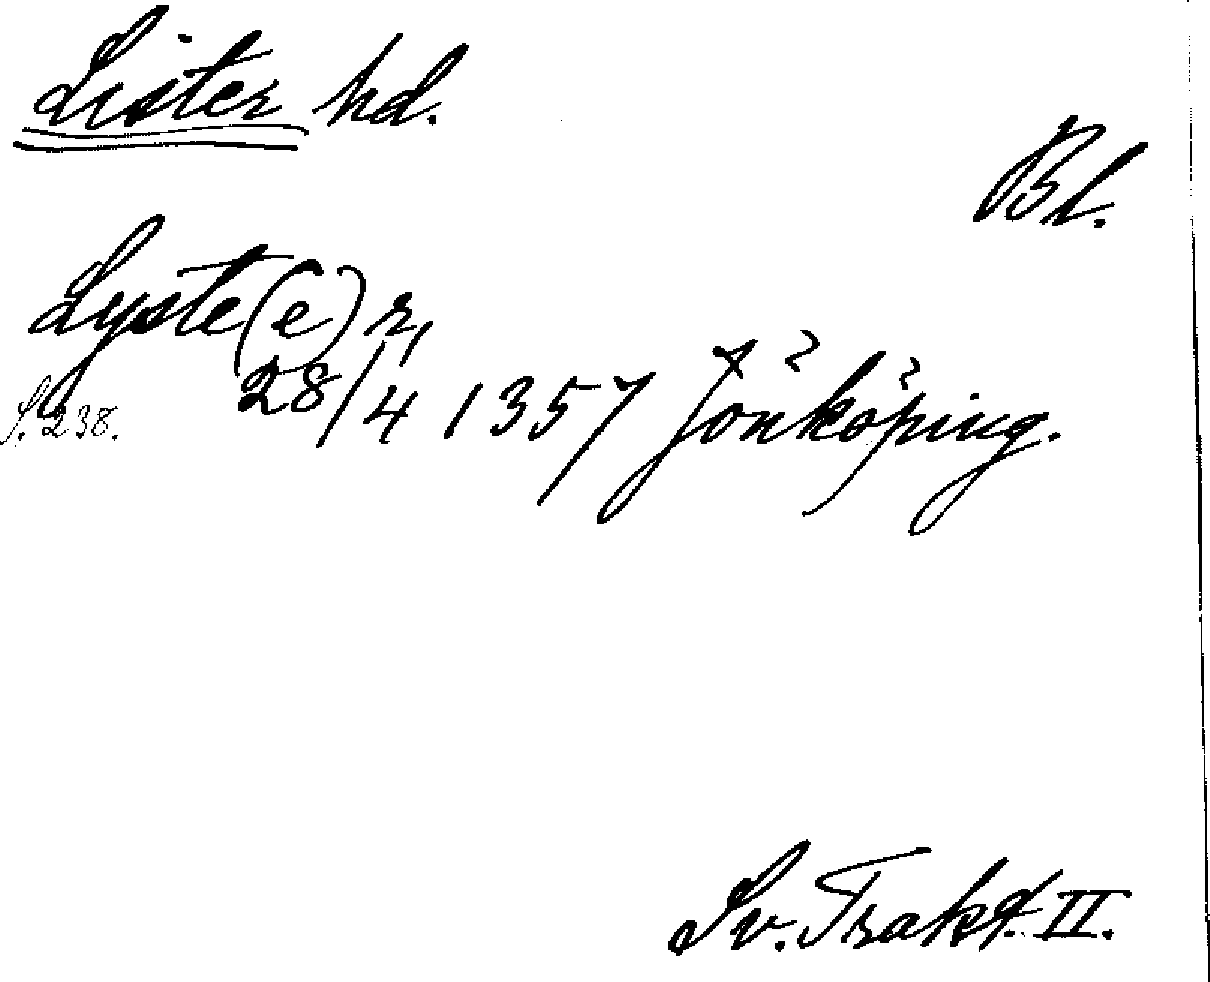 Lister hd.
Bl.
Lyste(e)r,
S. 238.
28/4 1357 Jönköping.
Sv. Trakt. II.